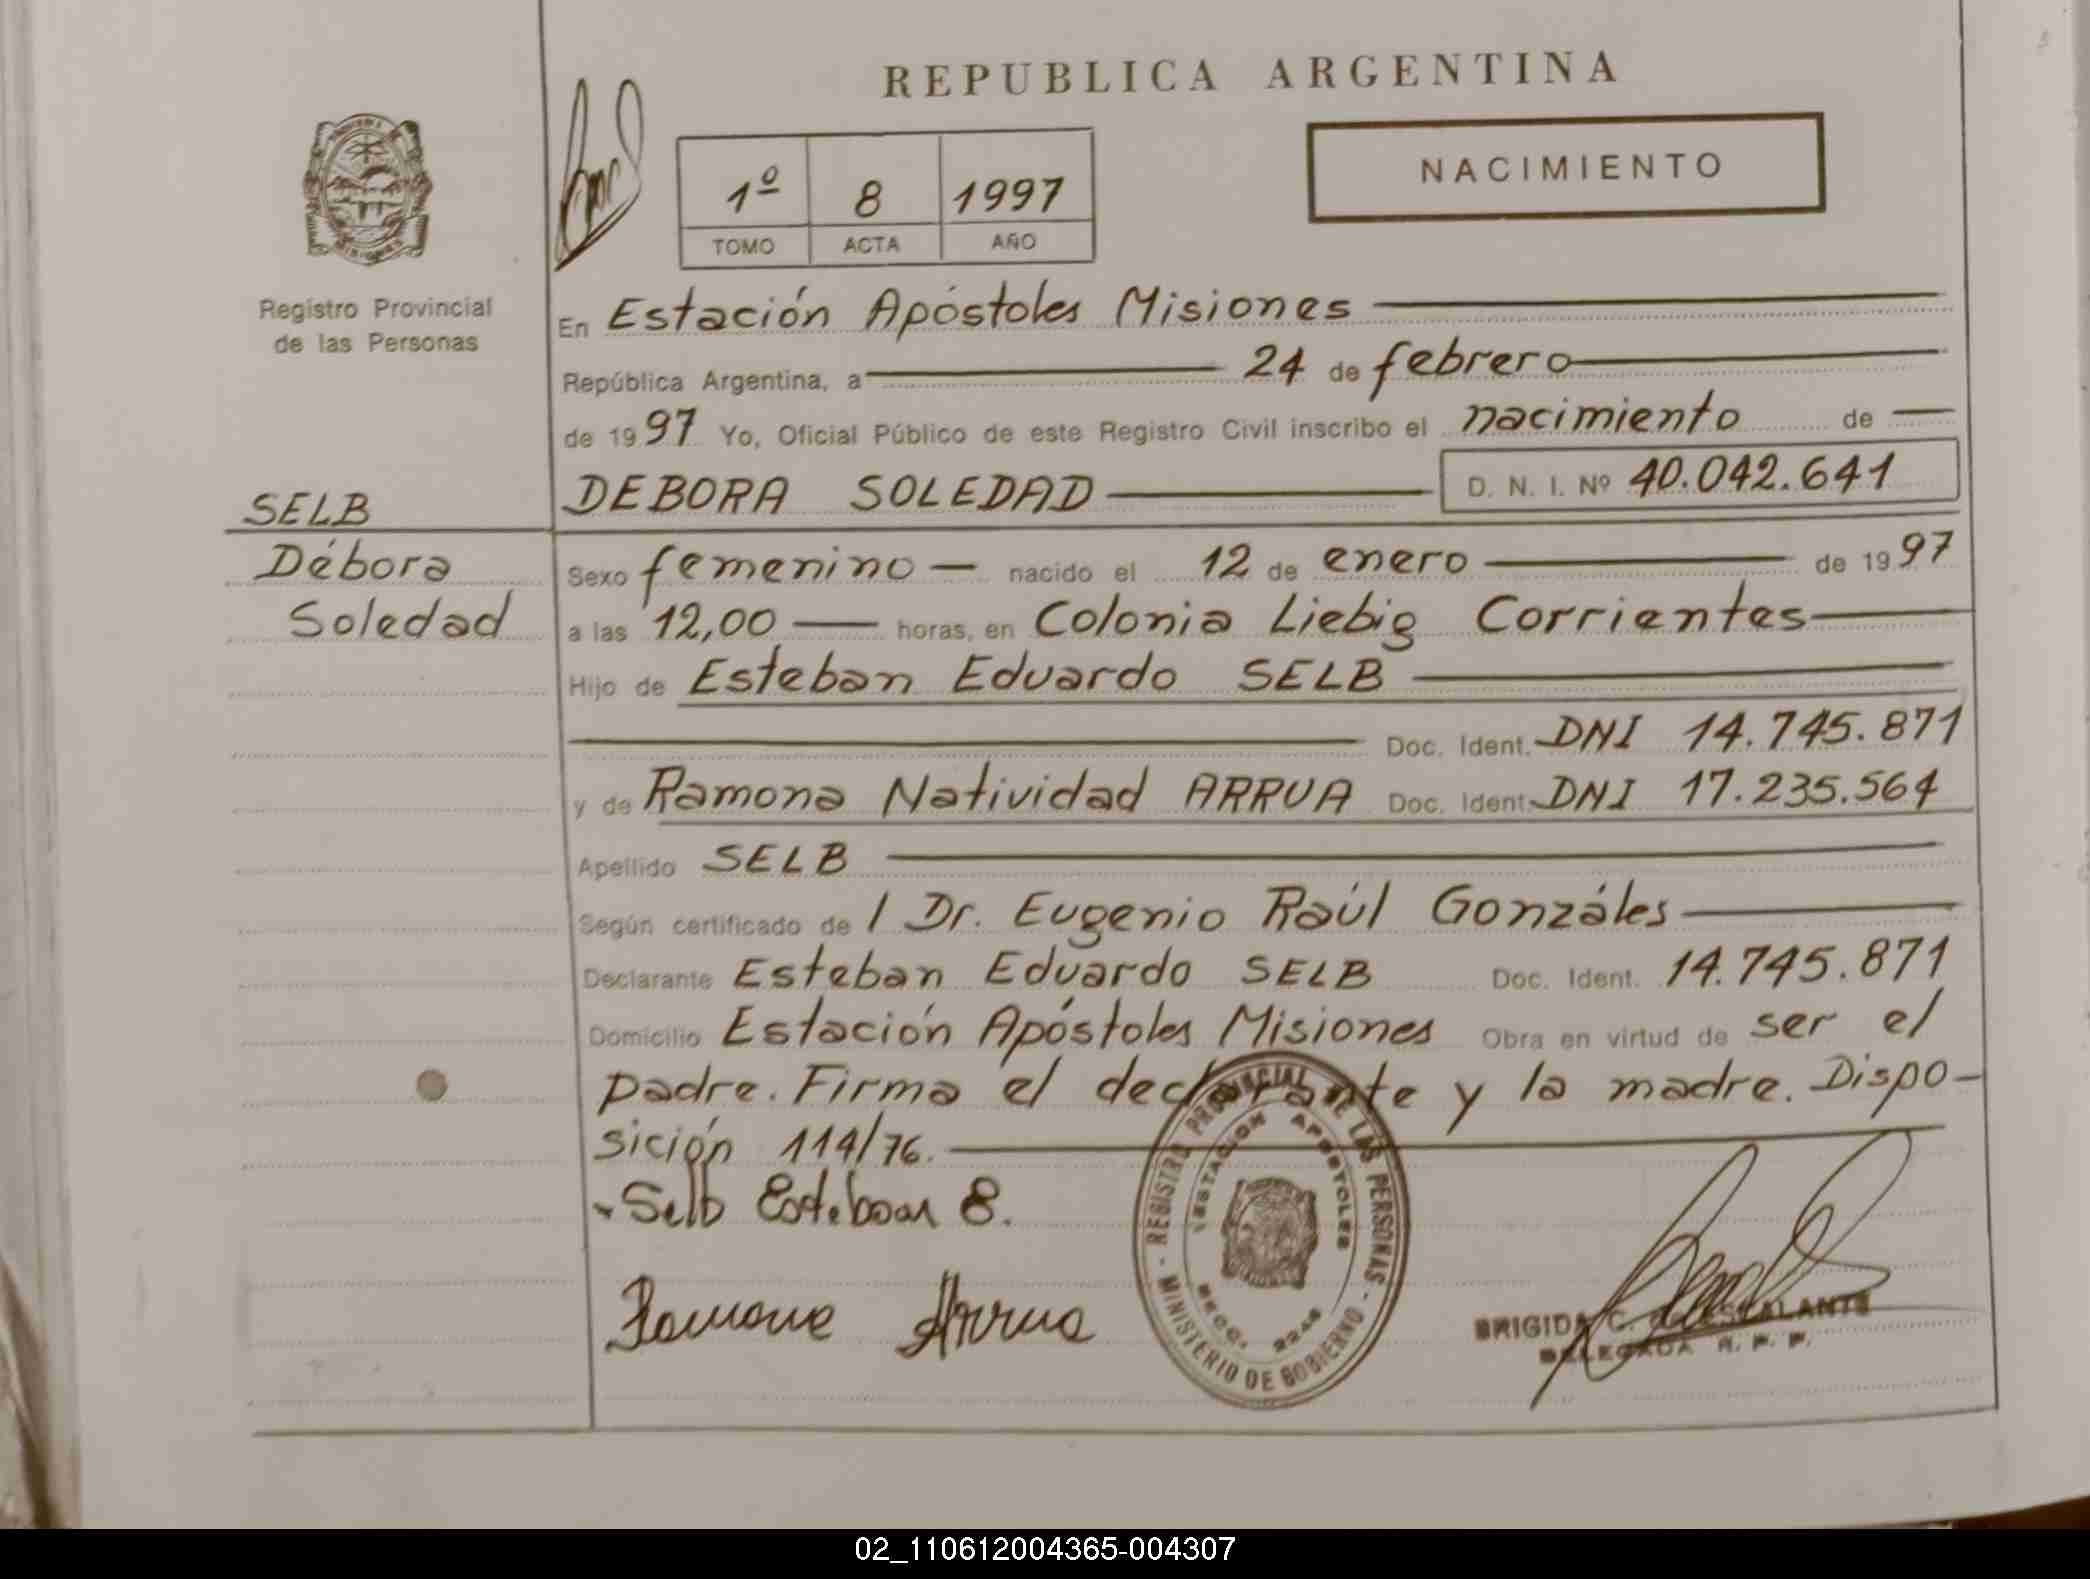 REPUBLICA ARGENTINA
NACIMIENTO
1º 8 1997
TOMO ACTA AÑO
Registro Provincial
de las Personas
En Estación Apóstoles Misiones
República Argentina, a 24 de febrero
de 1997 Yo, Oficial Público de este Registro Civil inscribo el nacimiento de
DEBORA SOLEDAD D. N. I. Nº 40.042.641
SELB
Débora
Soledad
Sexo femenino nacido el 12 de enero de 1997
a las 12,00 horas, en Colonia Liebig Corrientes
Hijo de Esteban Eduardo SELB
Doc. Ident. DNI 14.745.871
y de Ramona Natividad ARRUA Doc. Ident. DNI 17.235.564
Apellido SELB
Según certificado de / Dr. Eugenio Raúl Gonzáles
Declarante Esteban Eduardo SELB Doc. Ident. 14.745.871
Domicilio Estación Apóstoles Misiones Obra en virtud de ser el
padre. Firma el declarante y la madre. Dispo-
sición 114/76.
Selb Esteban E.
Ramona Arrua
REGISTRO PROVINCIAL DE LAS PERSONAS - MINISTERIO DE GOBIERNO -
ESTACION APOSTOLES
BRIGIDA C. ESCALANTE
DELEGADA R. P. P.
02_110612004365-004307